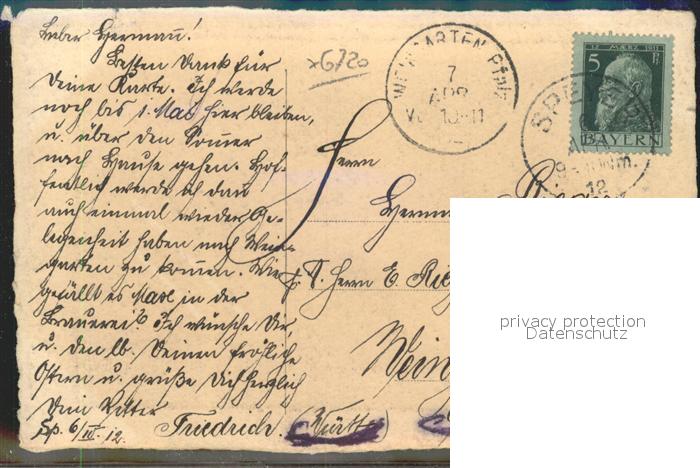 Lieber Hermann!
Besten Dank für
Deine Karte. Ich werde
noch bis 1. Mai hier bleiben,
u. über den Sommer
nach Hause gehen. Hof-
fentlich werde ich dan
auch einmal wieder Ge-
legenheit haben nach Wein-
garten zu kommen. Wie
gefällt es Max in der
Brauerei? Ich wünsche Dir
u. den lb. Deinen fröhliche
Ostern u. grüße Dich herzlich
Dein Vetter
Friedrich.
Sp. 6/IV. 12.
x6720
WEINGARTEN PFALZ
7
APR
VO 10-11
12 MÄRZ 1911
5 Pf
BAYERN
SPE
12
Herrn
Herm
p. T. Herrn E. Rie
Wein
(Württ
privacy protection
Datenschutz